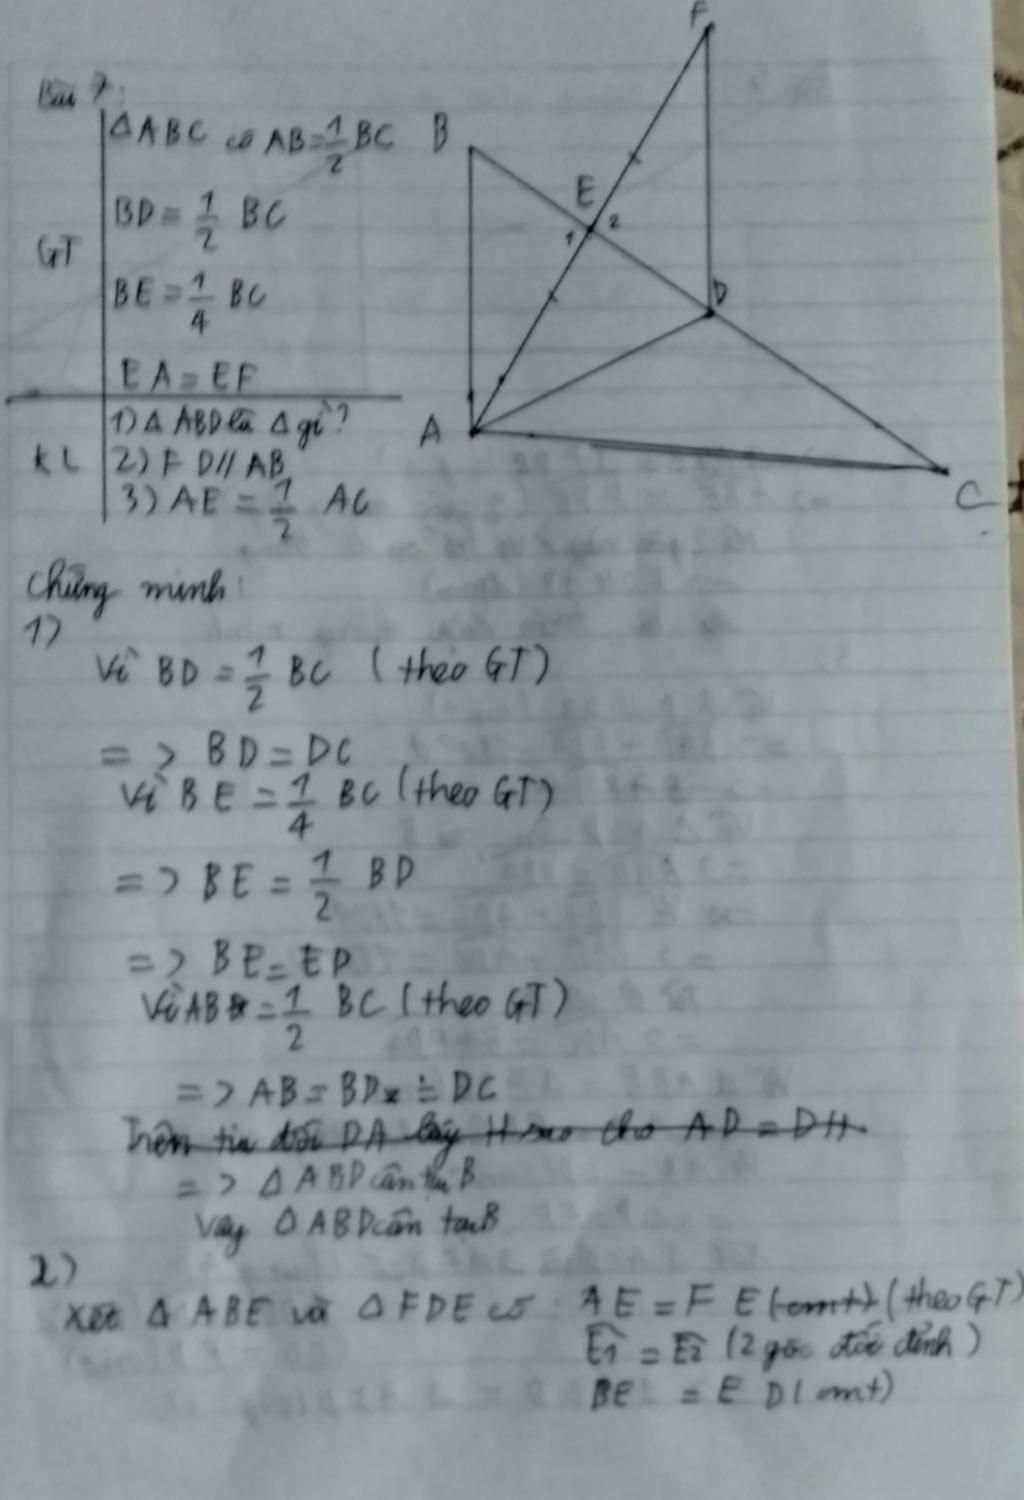 Bài 7:
ΔABC có AB=1/2 BC
BD = 1/2 BC
GT
BE = 1/4 BC
EA = EF
1) Δ ABD là Δ gì?
KL 2) FD // AB
3) AE = 1/2 AC
F
B
E
1 2
D
A
C
Chứng minh:
1)
Vì BD = 1/2 BC (theo GT)
=> BD = DC
Vì BE = 1/4 BC (theo GT)
=> BE = 1/2 BD
=> BE = ED
Vì AB = 1/2 BC (theo GT)
=> AB = BD = DC
Trên tia đối DA lấy H sao cho AD = DH.
=> Δ ABD cân tại B
Vậy Δ ABD cân tại B
2)
Xét Δ ABE và Δ FDE có: AE = FE (cmt) (theo GT)
Ê1 = Ê2 (2 góc đối đỉnh)
BE = ED (cmt)